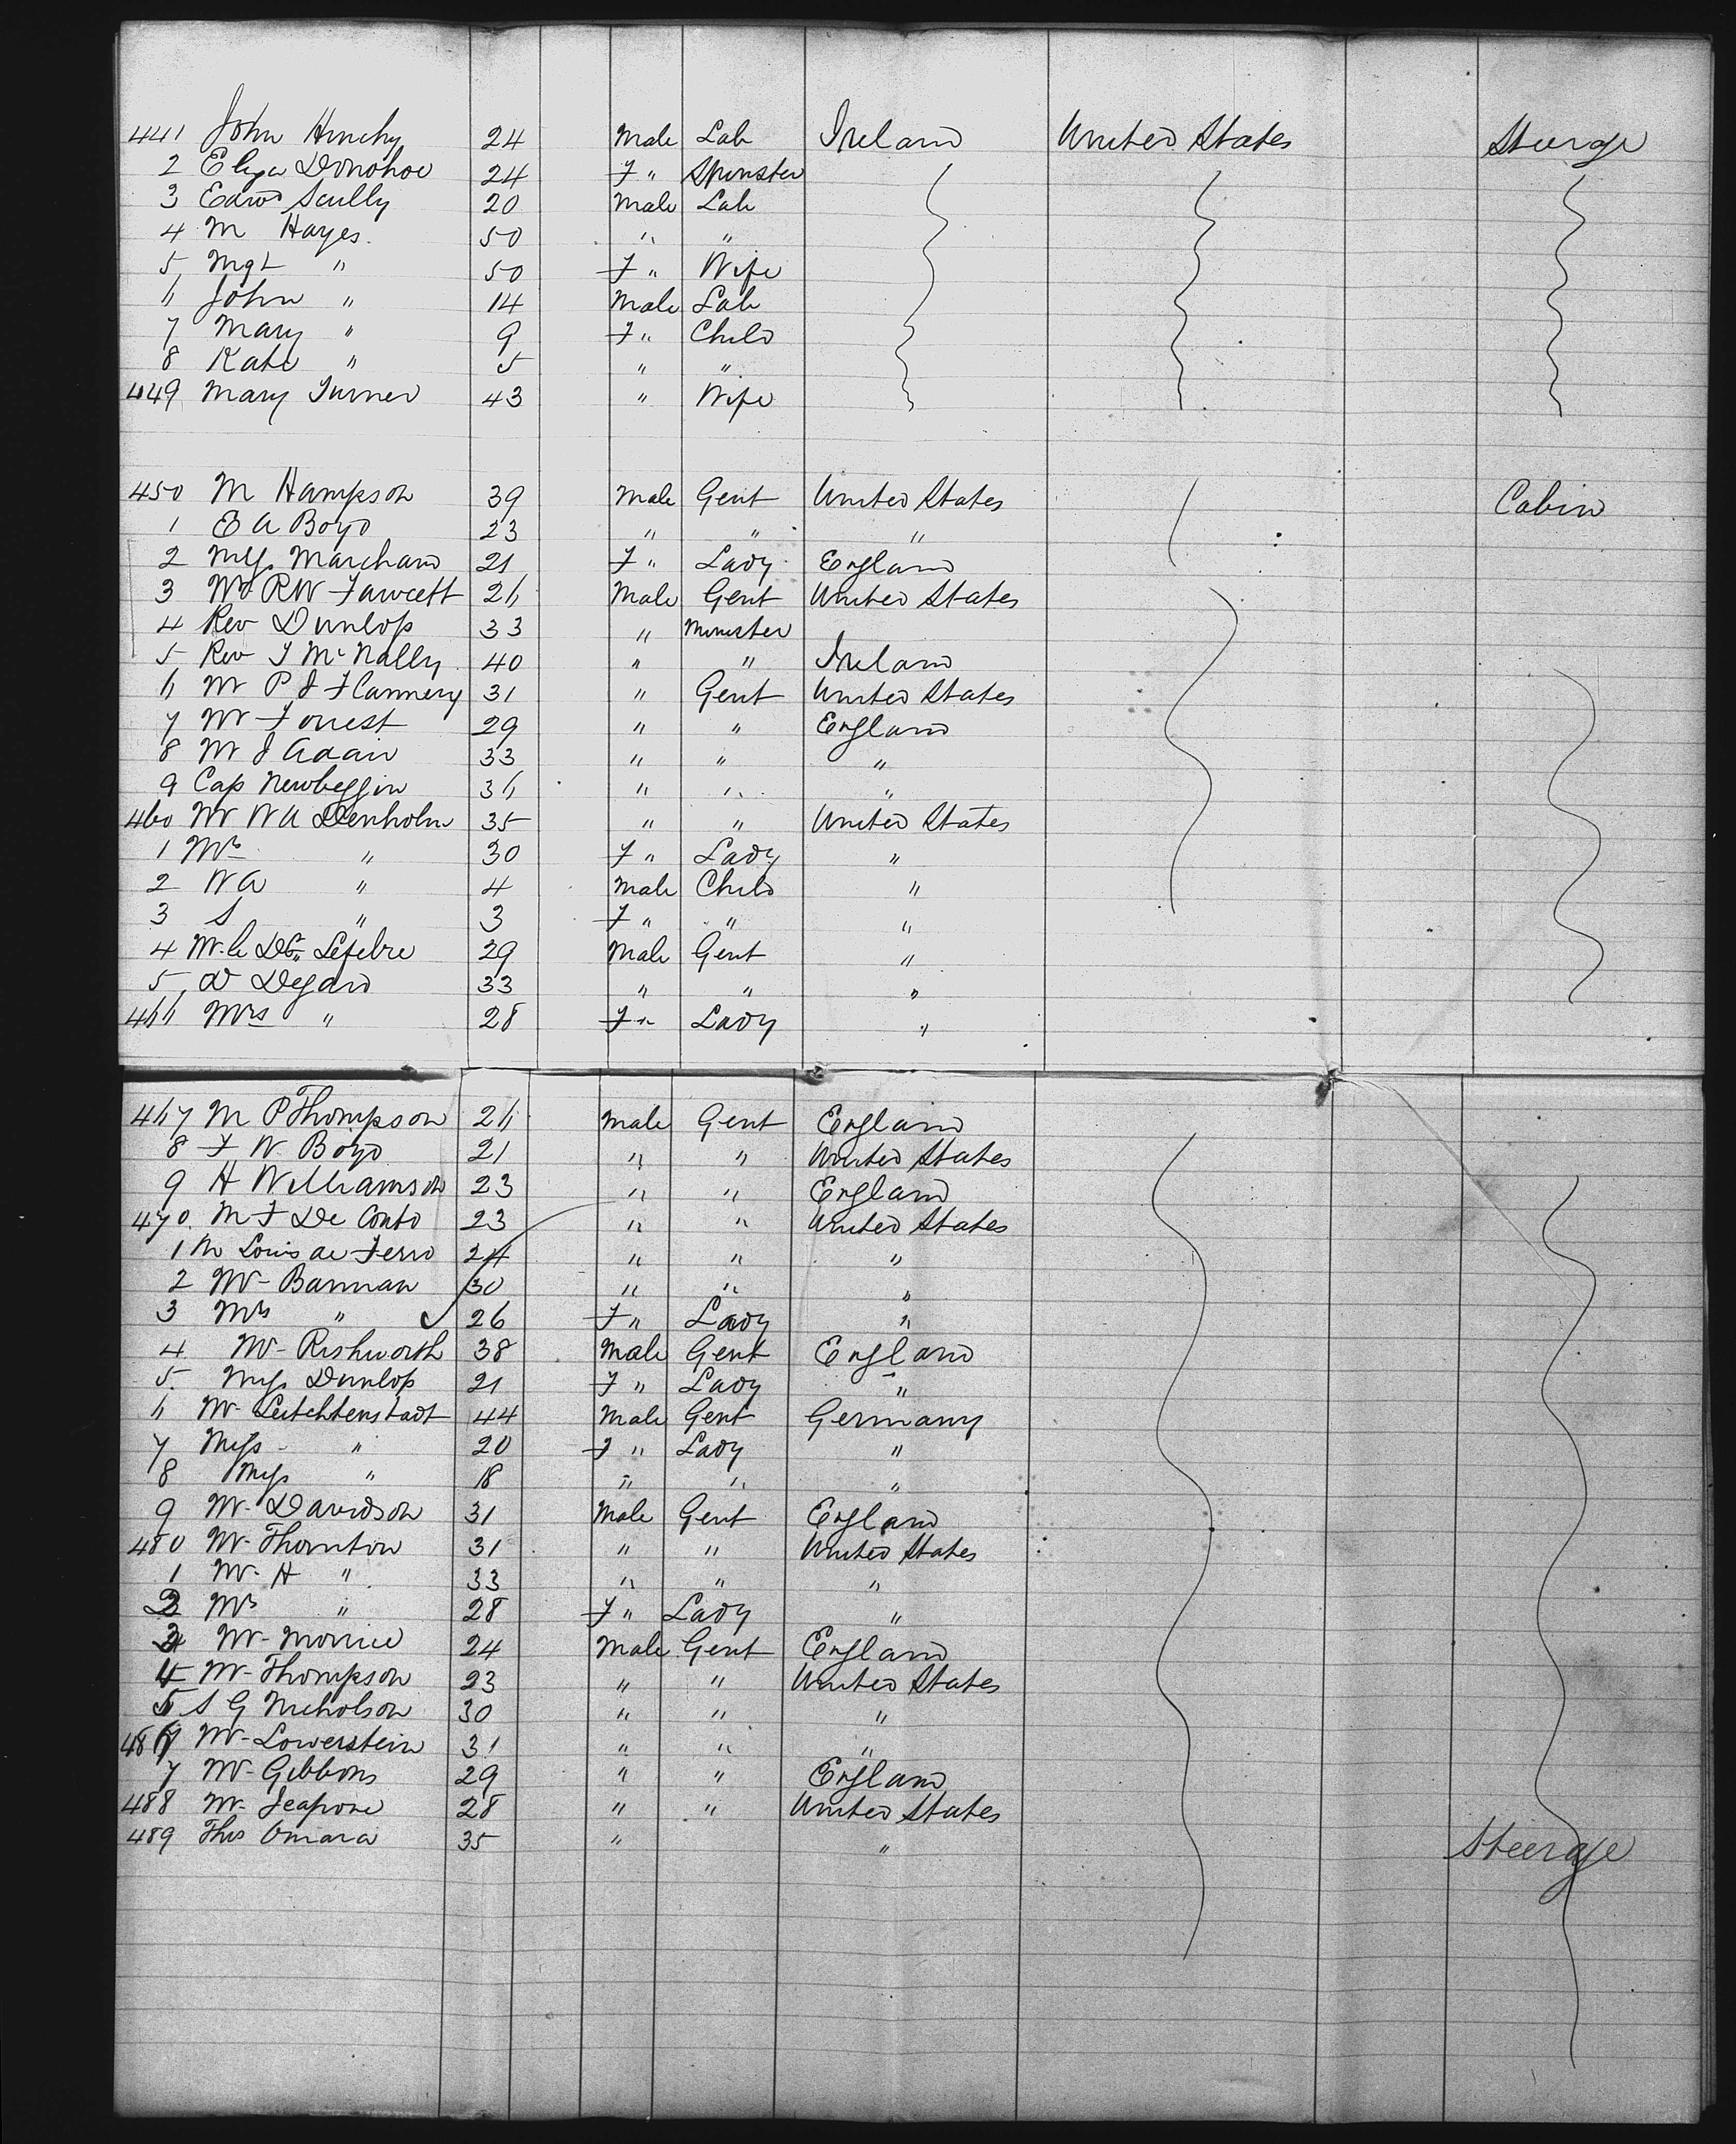 441 John Hinchy 24 Male Lab Ireland United States Steerge
2 Eliza Donohoe 24 F " Spinster
3 Edwd Scully 20 Male Lab
4 M Hayes 50 " "
5 Mgt " 50 F " Wife
6 John " 14 Male Lab
7 Mary " 9 F " Child
8 Kate " 5 " "
449 Mary Turner 43 " Wife
450 M Hampson 39 Male Gent United States Cabin
1 E A Boyd 23 " " "
2 Miss Marchand 21 F " Lady England
3 Mr RW Fawcett 26 Male Gent United States
4 Rev Dunlop 33 " Minister
5 Rev J McNally 40 " " Ireland
6 Mr P J Flannery 31 " Gent United States
7 Mr Forrest 29 " " England
8 Mr J Adair 33 " " "
9 Cap Newbeggin 36 " " "
460 Mr WA Denholm 35 " " United States
1 Mrs " 30 F " Lady "
2 WA " 4 Male Child "
3 S " 3 F " " "
4 Lefebre 29 Male Gent "
5 Degard 33 " " "
466 Mrs " 28 F " Lady "
467 M P Thompson 26 Male Gent England
8 F W Boyd 21 " " United States
9 H Williamson 23 " " England
470 M F De Conto 23 " " United States
1 M Louis de Ferro 24 " " "
2 Mr Bannan 30 " " "
3 Mrs " 26 F " Lady "
4 Mr Rishworth 38 Male Gent England
5 Miss Dunlop 21 F " Lady "
6 Mr Leitchtenstadt 44 Male Gent Germany
7 Miss " 20 F " Lady "
8 Miss " 18 " " "
9 Mr Davidson 31 Male Gent England
480 Mr Thornton 31 " " United States
1 Mr H " 33 " " "
2 Mrs " 28 F " Lady "
3 Mr Morrice 24 Male Gent England
4 Mr Thompson 23 " " United States
5 S G Nicholson 30 " " "
486 Mr Lowerstein 31 " " "
7 Mr Gibbons 29 " " England
488 Mr 28 " " United States
489 Thos Omara 35 " " Steerge